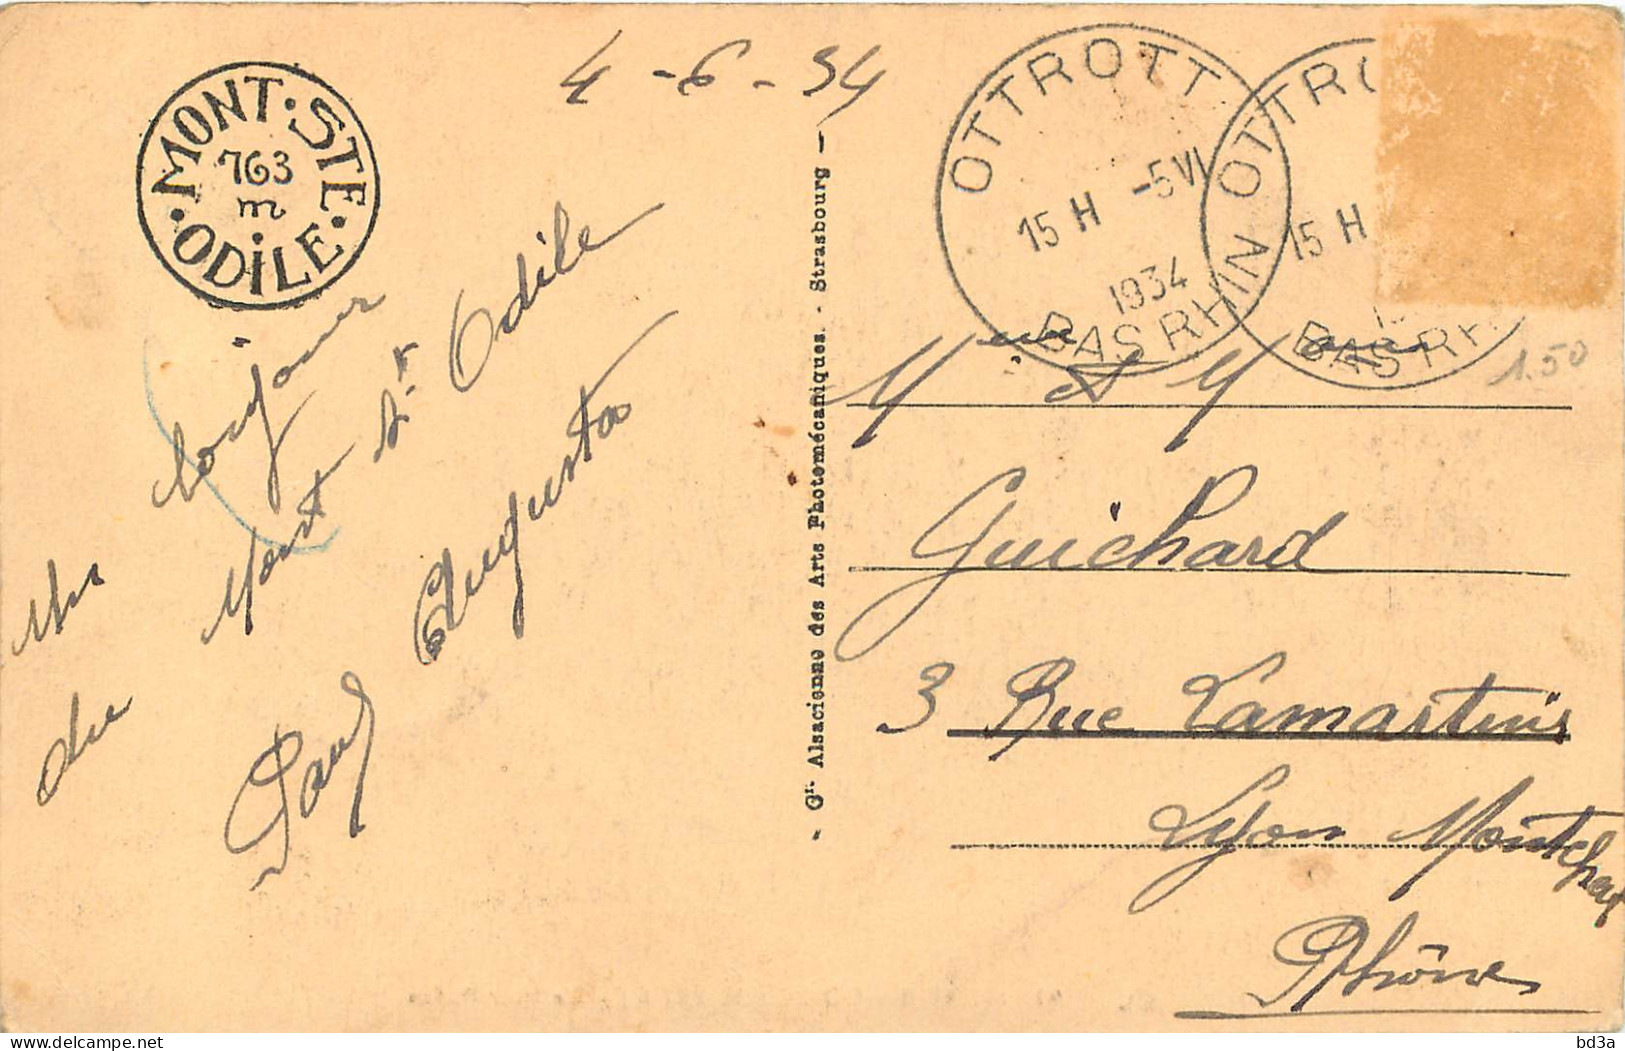 4 - 6 - 34
MONT · STE · ODILE ·
763
m
OTTROTT
15 H -5 VI
1934
BAS RHIN
OTTRO
15 H
BAS RH
1.50
Un bonjour
du Mont Ste Odile
Paul Augusta
- Gie Alsacienne des Arts Photomécaniques. - Strasbourg -
Mme & M
Guichard
3 Rue Lamartine
Lyon Montchat
Rhône
bd3a